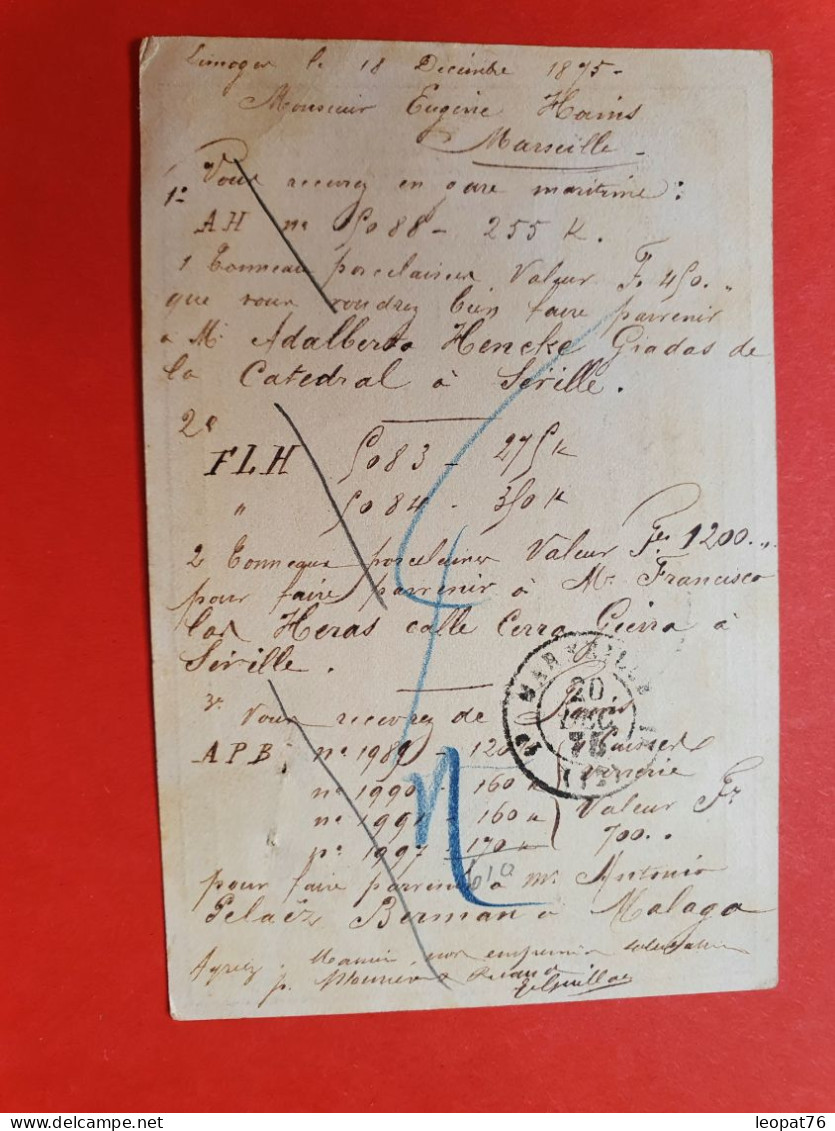 Limoges le 18 Décembre 1875 -
Monsieur Eugène Hains
Marseille -
1º Vous recevrez en gare maritime :
AH nº 5088 - 255 K.
1 Tonneau porcelaines Valeur F. 450. "
que vous voudrez bien faire parvenir
à Mr Adalberto Hencke Gradas de
la Catedral à Séville.
2º
FLH 5083 - 275 K
" 5084 - 350 K
2 Tonneaux porcelaines Valeur Fcs 1200. "
pour faire parvenir à Mr Francisco
las Heras calle Cerra Gierra à
Séville.
3º Vous recevrez de
APB nº 1989 - 120
nº 1990 - 160 K verrerie
nº 1991 - 160 K Valeur Fr
nº 1997 - 170 K 700. "
610
pour faire parvenir à Mr Antonio
Pelaëz Berman à Malaga
Agréez, Monsieur, nos
p.
MARSEILLE
20
DEC
75
leopat76